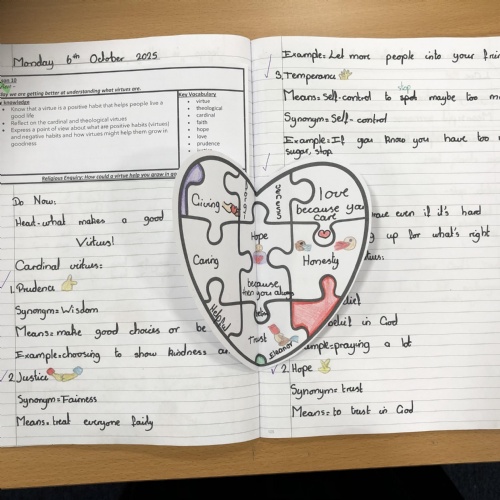 Monday 6th October 2025.
day we are getting better at understanding what virtues are.
knowledge
Know that a virtue is a positive habit that helps people live a good life
Reflect on the cardinal and theological virtues
Express a point of view about what are positive habits (virtues) and negative habits and how virtues might help them grow in goodness
Key Vocabulary
virtue
theological
cardinal
faith
hope
love
prudence
Religious Enquiry: How could a virtue help you grow in
Do Now:
Head-what makes a good
Virtues!
Cardinal virtues:
1. Prudence
Synonym=Wisdom
Means=make good choices or be
Example=choosing to show kindness
2. Justice
Synonym=Fairness
Means=treat everyone fairly
Giving
love
because you
care
Hope
Caring
Honesty
because
then you always
Helpful
Trust
Eleanor
Example=Let more people into your
3. Temperance
stop
Means=Self-control to spot maybe too
Synonym=Self-control
Example=If you know you have too
sugar, stop.
even if it's hard
up for what's right
in God
praying a lot
2. Hope
Synonym=trust
Means=to trust in God